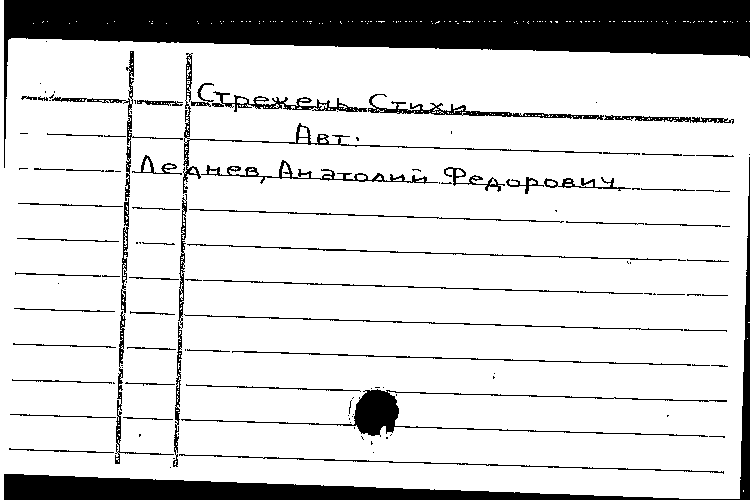 Стрежень Стихи
Авт.
Леднев, Анатолий Федорович.